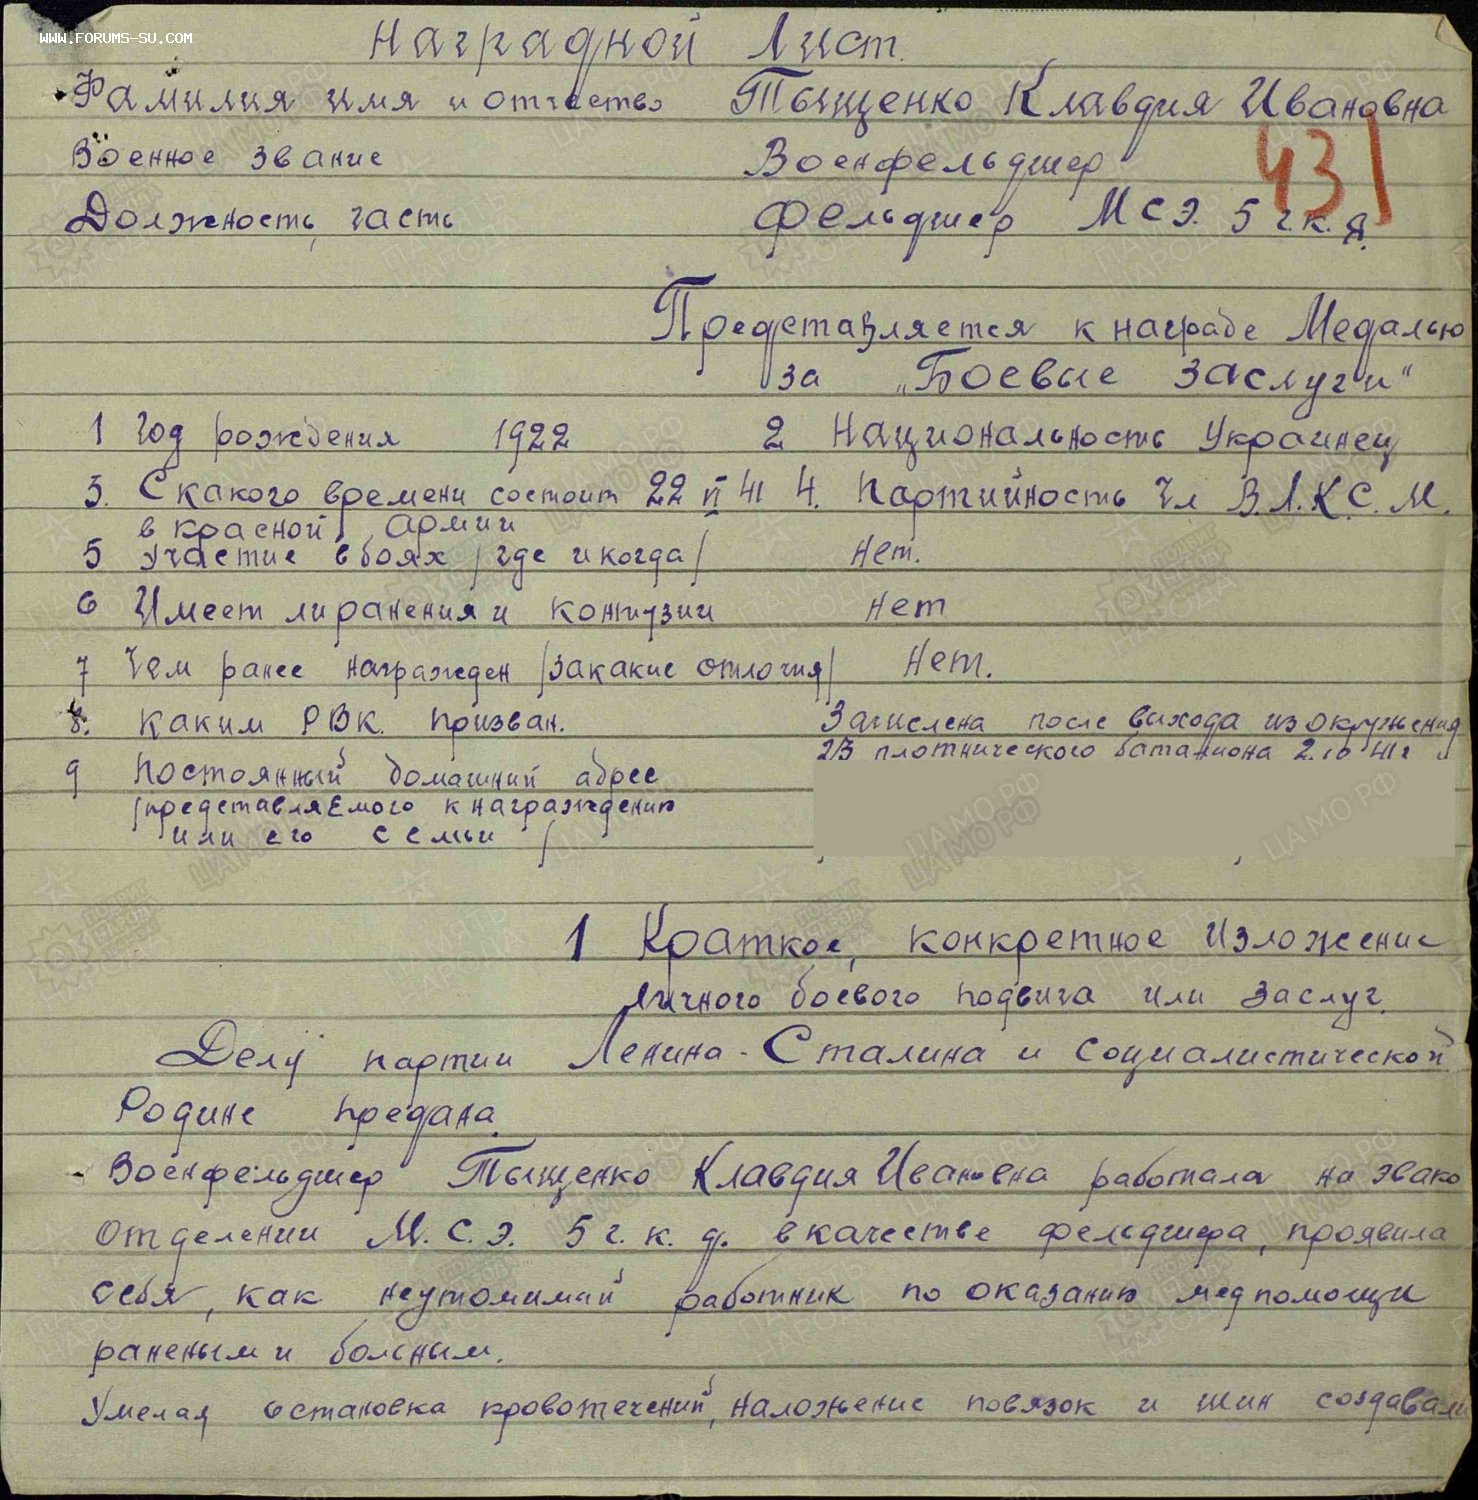 WWW.FORUMS-SU.COM
Наградной Лист.
Фамилия имя и отчество Тыщенко Клавдия Ивановна
Военное звание Военфельдшер
431
Должность, часть Фельдшер МСЭ. 5 г.к.д.
Представляется к награде Медалью
за „Боевые заслуги"
1 Год рождения 1922 2 Национальность Украинец
3. С какого времени состоит 22 VI 41 4. Партийность Чл В.Л.К.С.М.
в красной армии
5 Участие в боях /где и когда/ Нет.
6 Имеет ли ранения и контузии Нет
7 Чем ранее награжден /за какие отлочия/ Нет.
8. Каким РВК. призван. Зачислена после выхода из окружения
213 плотнического батальиона 2.10 41 г
9 Постоянный домашний адрес
/представляемого к награждению
или его семьи /
1 Краткое, конкретное изложение
личного боевого подвига или заслуг.
Делу партии Ленина - Сталина и социалистической
Родине предана.
Военфельдшер Тыщенко Клавдия Ивановна работала на эвако
отделении М.С.Э. 5 г.к.д. в качестве фельдшера, проявила
себя, как неутомимый работник по оказанию медпомощи
раненым и больным.
Умелая остановка кровотечений, наложение повязок и шин создавали